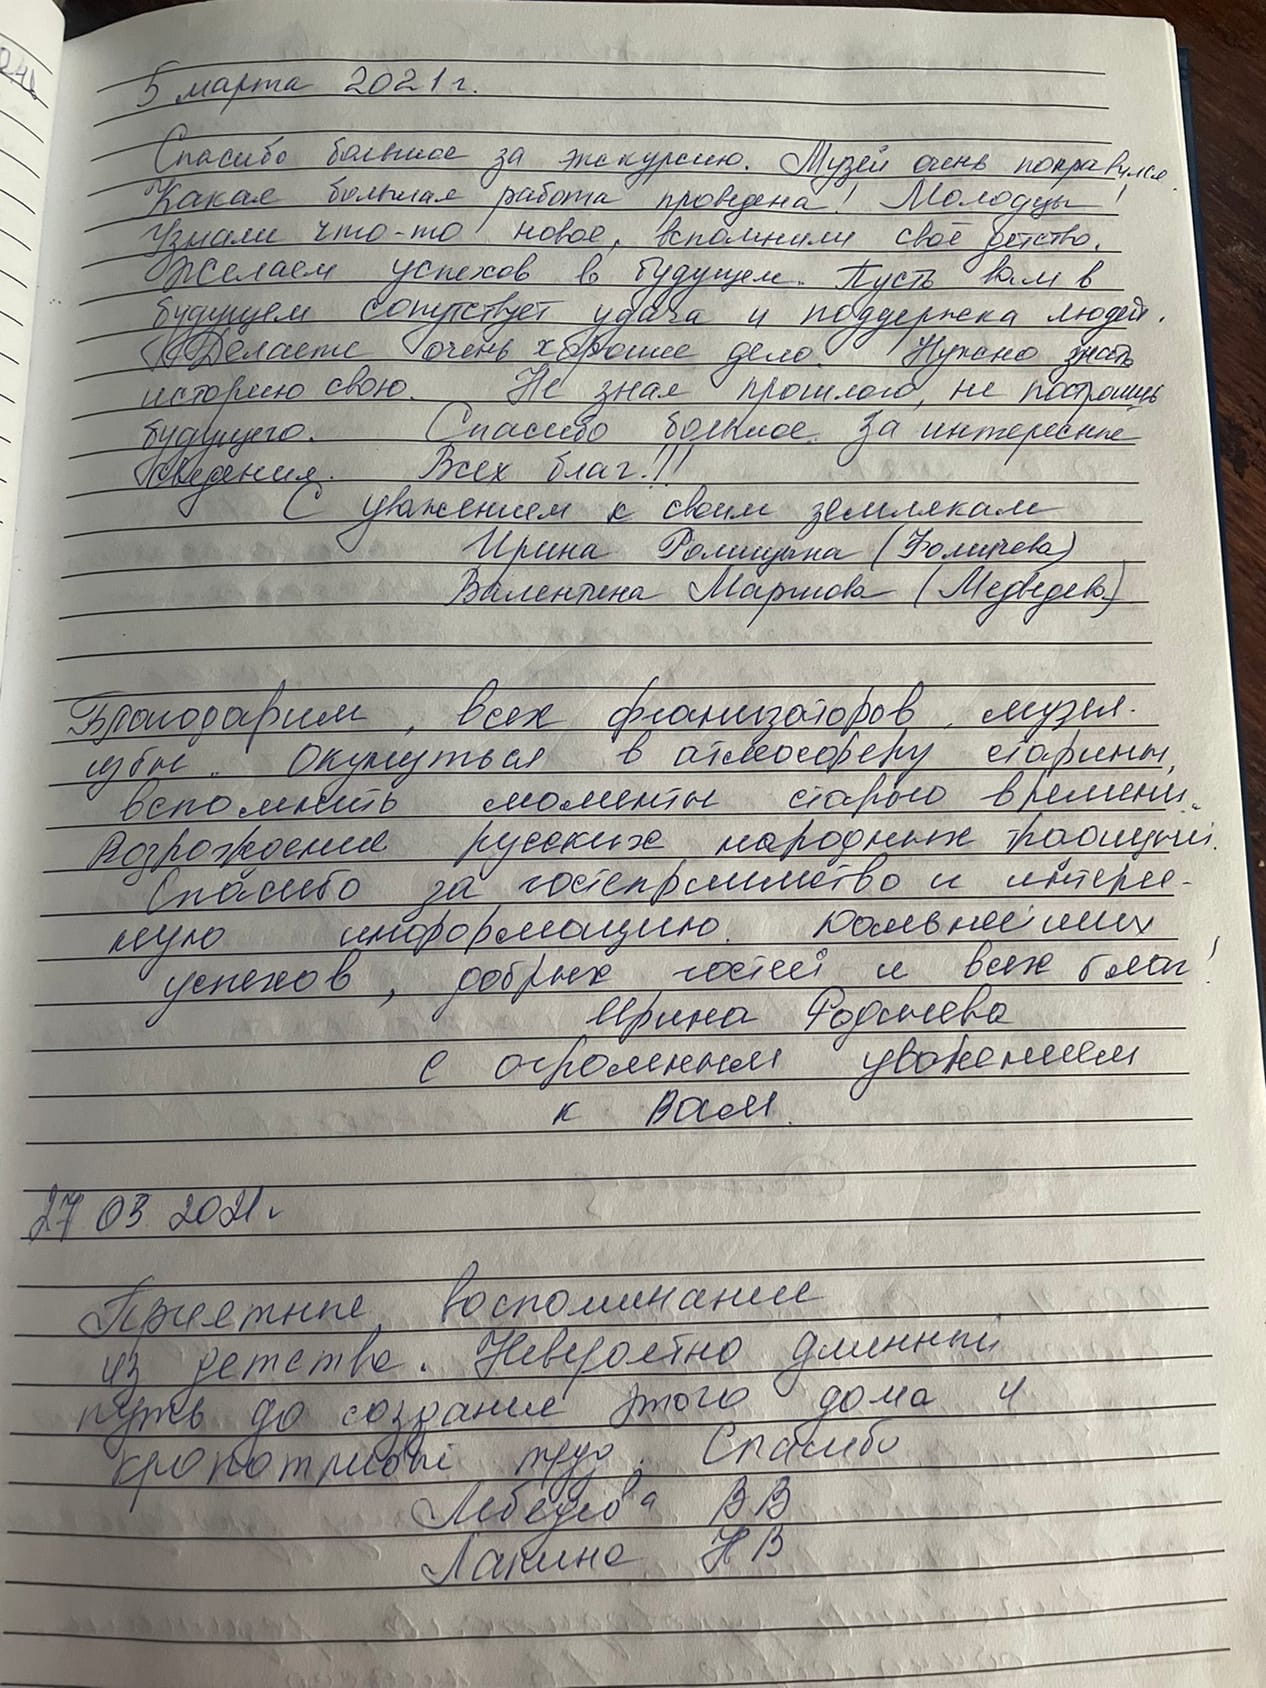 5 марта 2021 г.
Спасибо большое за экскурсию. Музей очень понравился.
Какая большая работа проведена! Молодцы!
Узнали что-то новое, вспомнили своё детство.
Желаем успехов в будущем. Пусть вам в
будущем сопутствует удача и поддержка людей.
Делаете очень хорошее дело. Нужно знать
историю свою. Не зная прошлого, не построишь
будущего. Спасибо большое за интересные
сведения. Всех благ!!!
С уважением к своим землякам
Ирина
Валентина (Медведева)
Благодарим, всех организаторов музея
избы. Окунуться в атмосферу старины,
вспомнить моменты старого времени.
Возрождение русских народных традиций.
Спасибо за гостеприимство и интерес-
ную информацию. Дальнейших
успехов, добрых гостей и всех благ!
Ирина
с огромным уважением
к Вам.
27 03 2021г
Приятные воспоминание
из детства. Невероятно длинный
путь до создание этого дома и
кропотливый труд. Спасибо
Лебедева ВВ
Лапина НВ